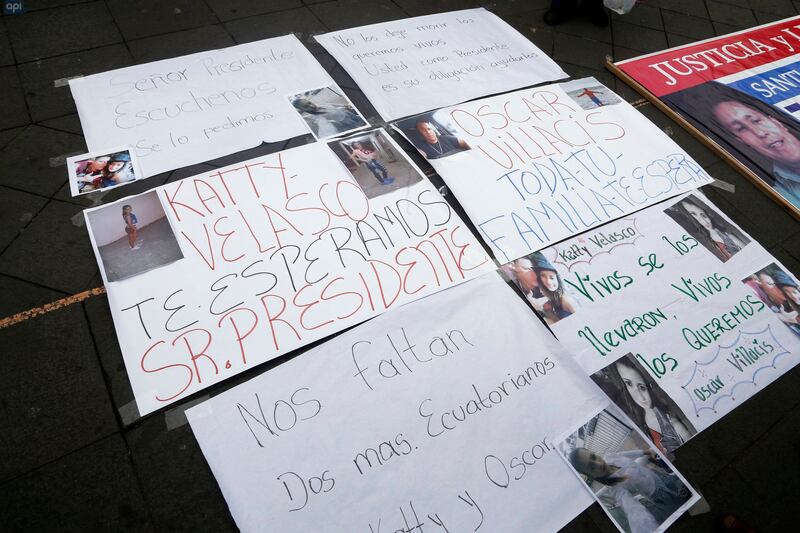 api
Señor Presidente
Escuchenos
Se lo pedimos.
No los deje morir los
queremos vivos
Usted como Presidente
es su obligación ayudarlos
JUSTICIA Y
SANT
KATTY-
VELASCO
TE.ESPERAMOS
SR.PRESIDENTE
OSCAR
VILLACIS
TODA-TU-
FAMILIA-TE-ESPERA
Katty Velasco
Vivos se los
llevaron, Vivos
los QUEREMOS
oscar Villacis
Nos faltan
Dos mas. Ecuatorianos
Katty y Oscar